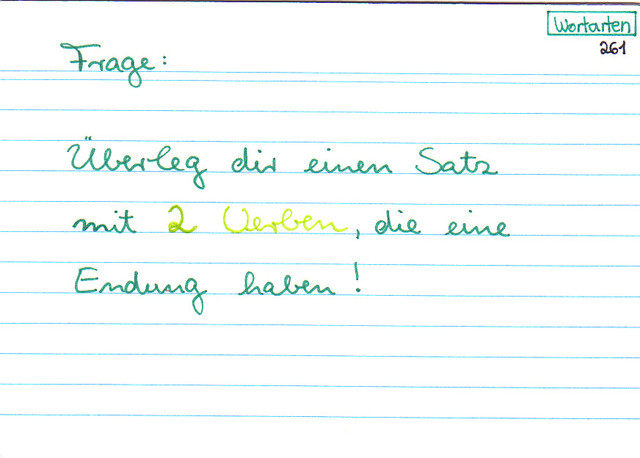 Wortarten
261
Frage:
Überleg dir einen Satz
mit 2 Verben, die eine
Endung haben!